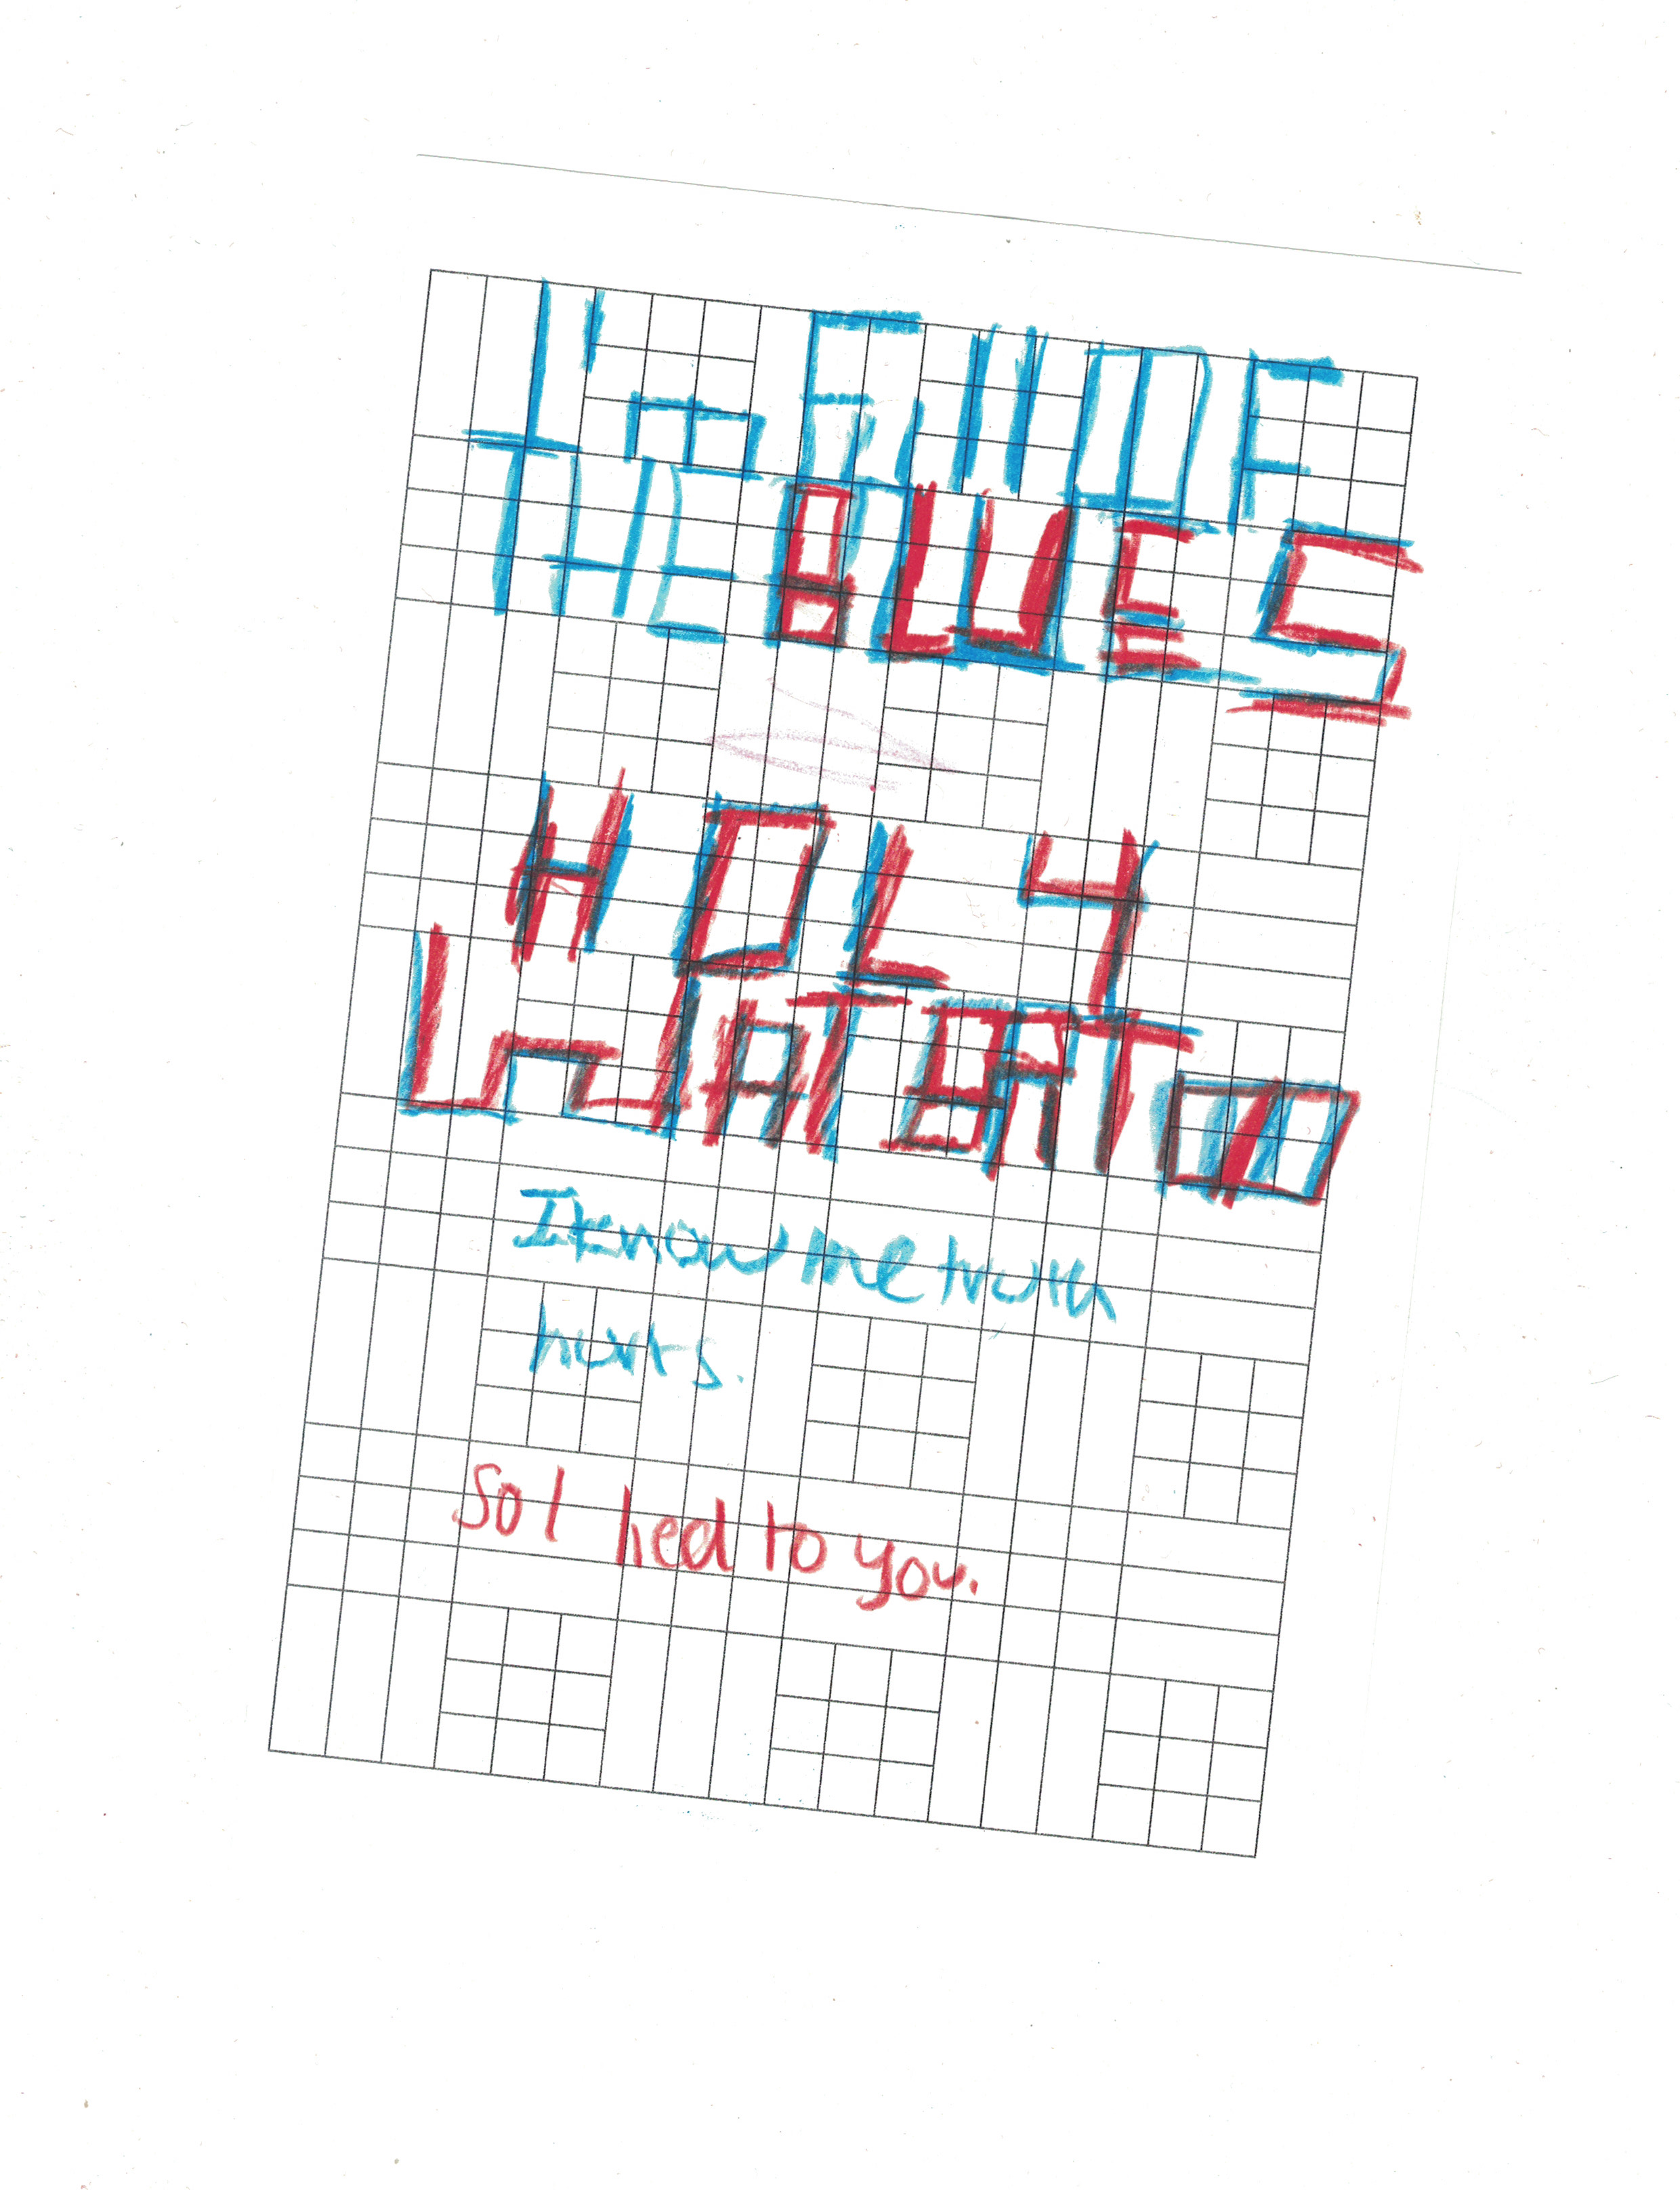 I'm FULL OF
THE BLUES
HOLY
WATER TOO
I know the truth
hurts.
So I lied to you.